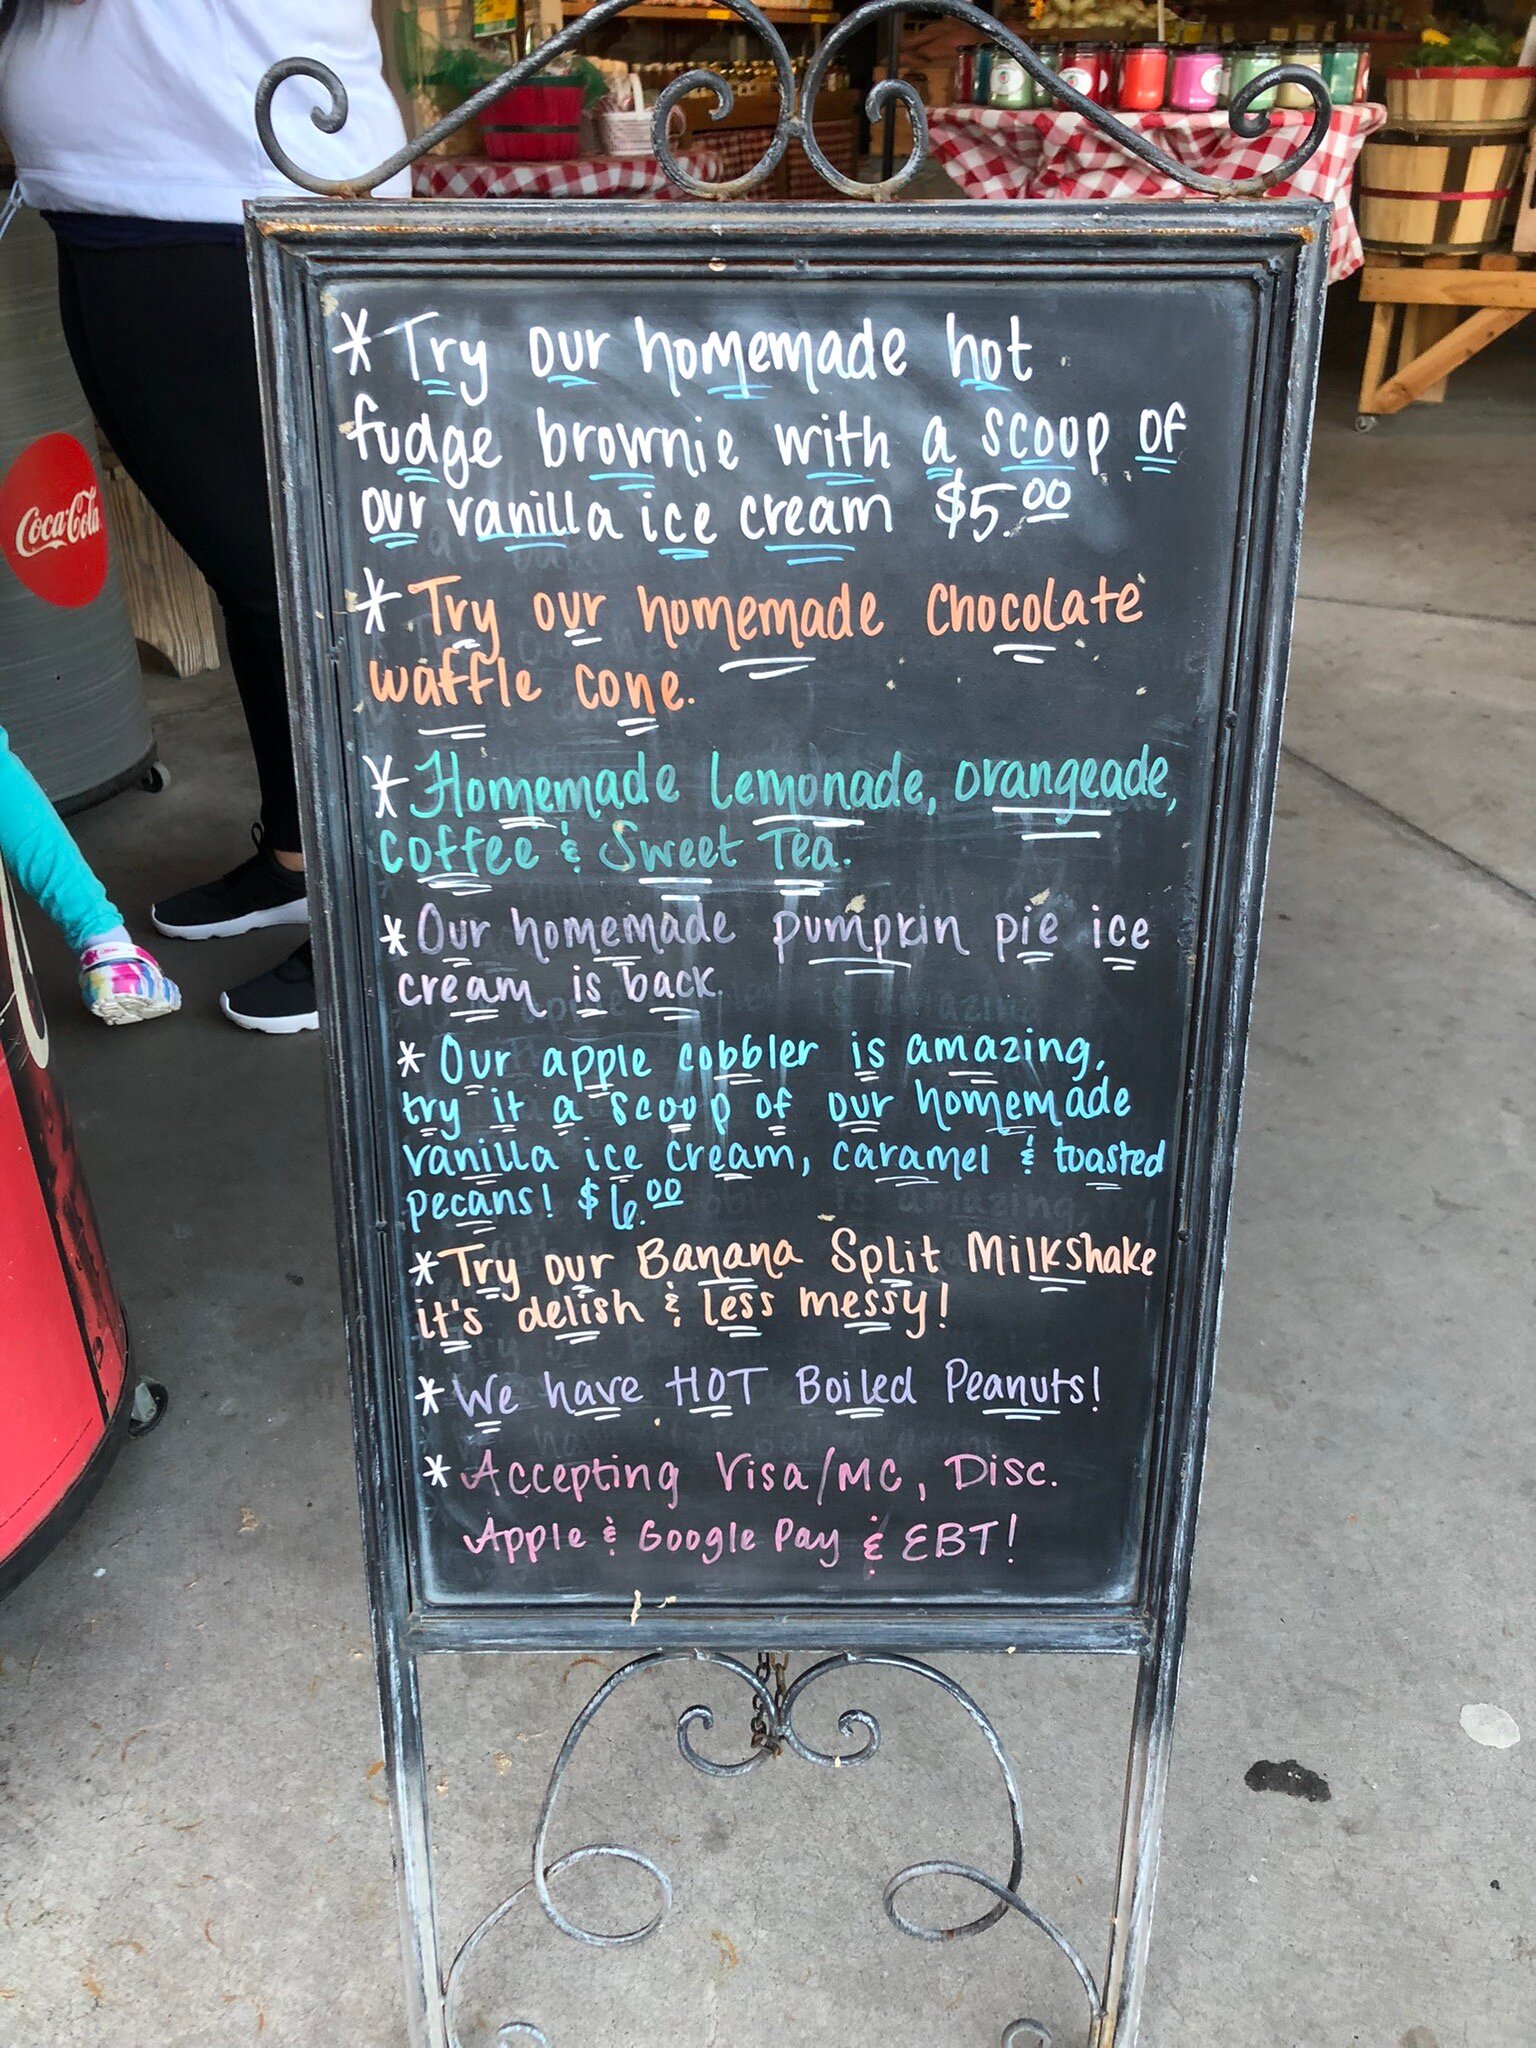 Coca-Cola
*Try our homemade hot
fudge brownie with a scoop of
our vanilla ice cream $5.00
*Try our homemade chocolate
waffle cone.
*Homemade Lemonade, orangeade,
coffee & Sweet Tea.
*Our homemade pumpkin pie ice
cream is back.
*Our apple cobbler is amazing,
try it a scoop of our homemade
vanilla ice cream, caramel & toasted
pecans! $6.00
*Try our Banana Split Milkshake
it's delish & less messy!
*We have HOT Boiled Peanuts!
*Accepting Visa/MC, Disc.
Apple & Google Pay & EBT!